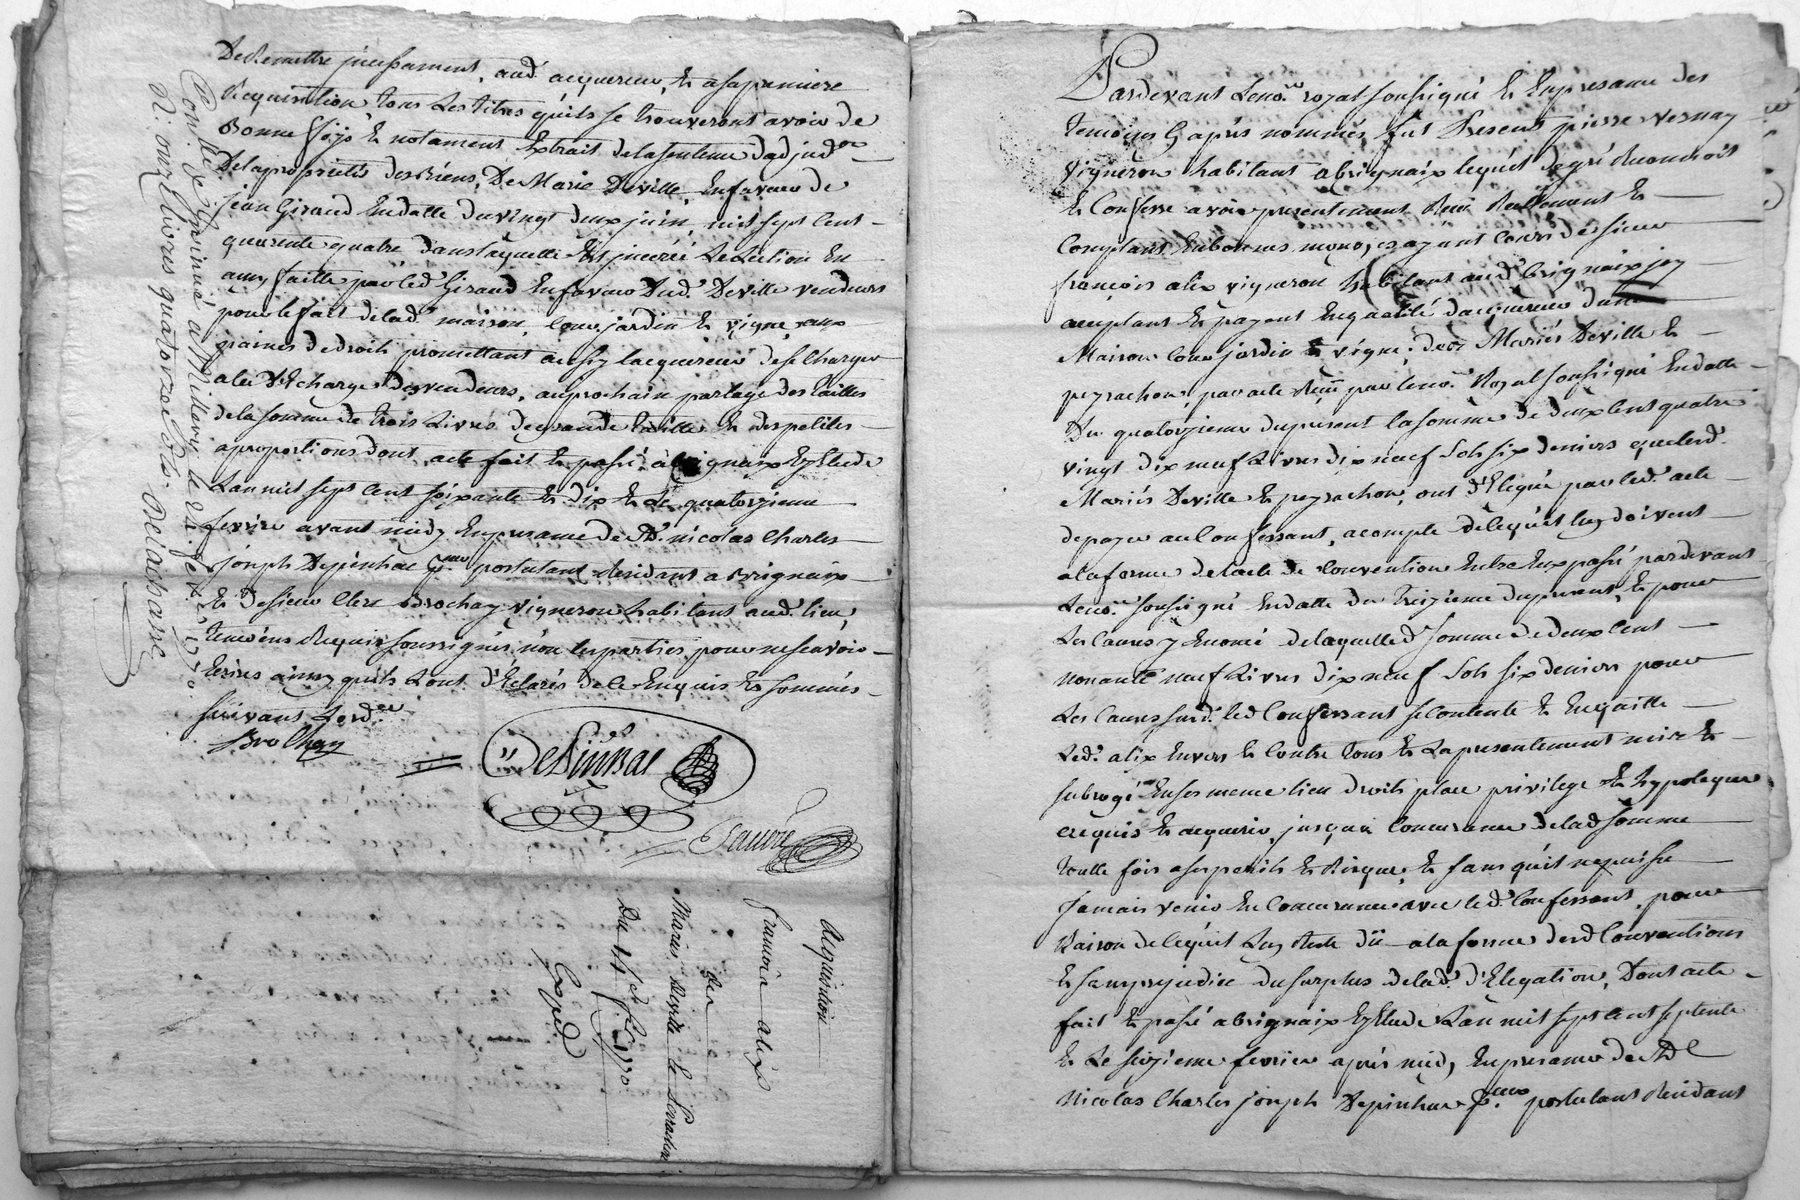 De Remettre jncessament, aud. acquereur, et a sa premiere
Requisition tous les titres qu'ils se trouveront avoir de
Bonne foÿe et notament Extrait de la sentence dadjud.on
De la proprietés des Biens, De Marie Deville, En faveur de
jean Giraud En datte du vingt deux juin, mil sept Cent
quarente quatre dans laquelle Est jnceréé Le Lection En
amy faitte par led. Giraud En faveur Dud. Deville vendeurs
pour le fait de lad. maison, Cour, jardin et vigne, aux
paines de droit, promettant aussy lacquereur de se Charger
a la d'Echarge des vendeurs, au prochain partage des tailles
de la somme de trois Livres de grande taille et des petites
a proportions dont acte fait et passé à Brignaix Ez Etude
Lan mil sept Cent soixante et dix et Le quatorzieme
fevrier avant midy En presance de Me. nicolas Charles
joseph Depinhac p.eur postulant Residant a Brignaix
et de sieur Clere Brochay Vigneron habitant aud. lieu,
temoins Requis soussignés non les parties pour ne scavoir
Ecrire ainsy quils Lont d'Eclarés de ce Enquis et sommés
suivant Lord.ce
Brochay
DePinhac
Controllé à Millery le 21 fev.er 1770
R. onze livres quatorze sols. Delachaise
Acquisition
francois alix
des
Mariés Deville et Peyrachon
Du 14e f. 1770
Exped.
Pardevant Leno.re royal soussigné et En presance des
temoins Cy apres nommés, fut Present pierre Vernay
Vigneron habitant a brignaix lequel de gré Reconnoit
et Confesse avoir presentement Receu Reellement et
Comptant En bonnes monoyes ayant Cours de sieur
françois alix vigneron habitant aud. brignaix jcy
acceptant et payant En qualité dacquereur dune
Maison Cour jardin et vigne, des Mariés Deville et
peyrachon, par acte Receu par leno.re Royal soussigné En datte
Du quatorzieme du present la somme de deux Cent quatre
vingt dix neuf Livres dix neuf Sols six deniers que lesd.
Mariés Deville et peyrachon, ont d'Elegué par led. acte
de payer au Confessant, a compte de lequel luy doivent
a la forme de lacte de Convention Entre Eux passé pardevant
Leno.re soussigné En datte du treizieme du present, et pour
Les Causes y Enoncé de laquelle d. somme de deux Cent
nonante neuf Livres dix neuf Sols six deniers pour
Les Causes susd. led Confessant se Contente et En quitte
Led. alix Envers et Contre tous et La presentement mis et
subrogé En ses meme lieu droits place privilege et hypoteque
acquis et acquerir, jusqua Concurance de lad somme
toutte fois a ses perils et Risque, et sans quil ne puisse
jamais venir En Concurance avec led. Confessant, pour
Raison de lequel Luy Reste dü a la forme desd Conventions
et sans prejudice du surplus de lad. d'Elegation, Dont acte
fait et passé a brignaix Ez Etude Lan mil sept Cent septente
et Le seizieme fevrier après midy En presance de Me
Nicolas Charles joseph Depinhac p.eur postulant Residant